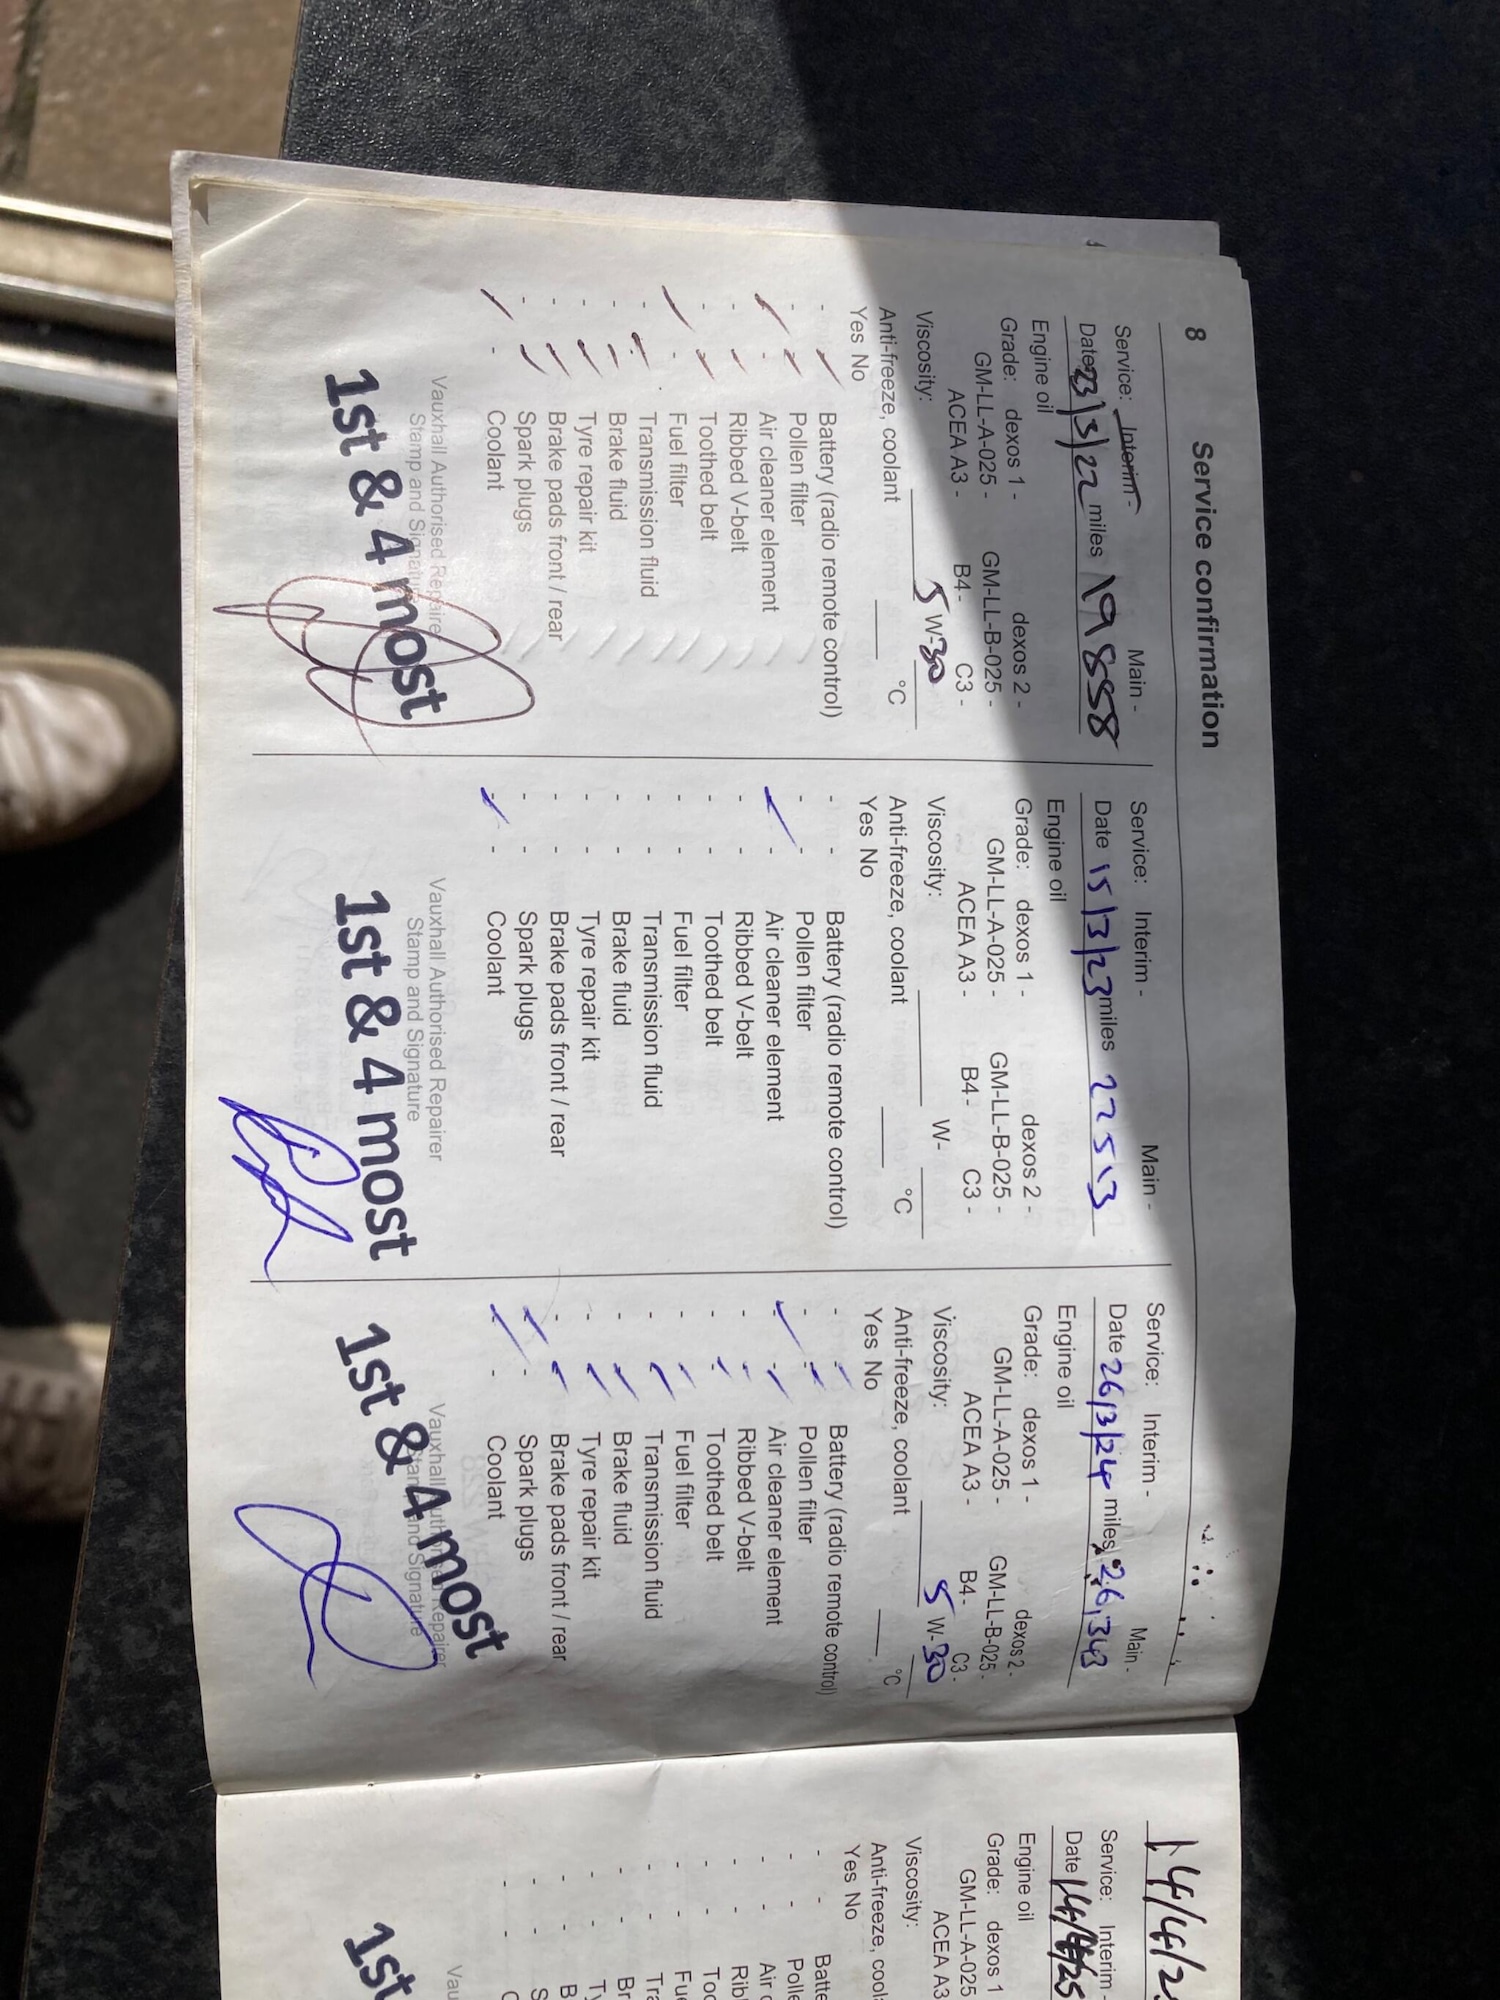 8 Service confirmation
Service: Interim - Main -
Date 23/3/22 miles 19858
Engine oil
Grade: dexos 1 - dexos 2 -
GM-LL-A-025 - GM-LL-B-025 -
ACEA A3 - B4 - C3 -
Viscosity: 5 W-30
Anti-freeze, coolant °C
Yes No
- Battery (radio remote control)
- Pollen filter
- Air cleaner element
- Ribbed V-belt
- Toothed belt
- Fuel filter
- Transmission fluid
- Brake fluid
- Tyre repair kit
- Brake pads front / rear
- Spark plugs
- Coolant
Vauxhall Authorised Repairer
Stamp and Signature
1st & 4 most
Service: Interim - Main -
Date 15/3/23 miles 22513
Engine oil
Grade: dexos 1 - dexos 2 -
GM-LL-A-025 - GM-LL-B-025 -
ACEA A3 - B4 - C3 -
Viscosity: W-
Anti-freeze, coolant °C
Yes No
- - Battery (radio remote control)
- - Pollen filter
- Air cleaner element
- - Ribbed V-belt
- - Toothed belt
- - Fuel filter
- - Transmission fluid
- - Brake fluid
- - Tyre repair kit
- - Brake pads front / rear
- - Spark plugs
- Coolant
Vauxhall Authorised Repairer
Stamp and Signature
1st & 4 most
Service: Interim - Main -
Date 26/3/24 miles 26,343
Engine oil
Grade: dexos 1 - dexos 2 -
GM-LL-A-025 - GM-LL-B-025 -
ACEA A3 - B4 - C3 -
Viscosity: 5 W-30
Anti-freeze, coolant °C
Yes No
- Battery (radio remote control)
- Pollen filter
- Air cleaner element
- Ribbed V-belt
- Toothed belt
- Fuel filter
- Transmission fluid
- Brake fluid
- Tyre repair kit
- Brake pads front / rear
- Spark plugs
- Coolant
Vauxhall Authorised Repairer
Stamp and Signature
1st & 4 most
14/4/2
Service: Interim -
Date 14/4/25
Engine oil
Grade: dexos 1
GM-LL-A-025
ACEA A3
Viscosity:
Anti-freeze, coola
Yes No
- - Batte
- - Polle
- - Air c
- - Rib
- - Too
- - Fue
- - Tra
- - Br
- - Ty
- - B
- - S
- - C
Vau
1st